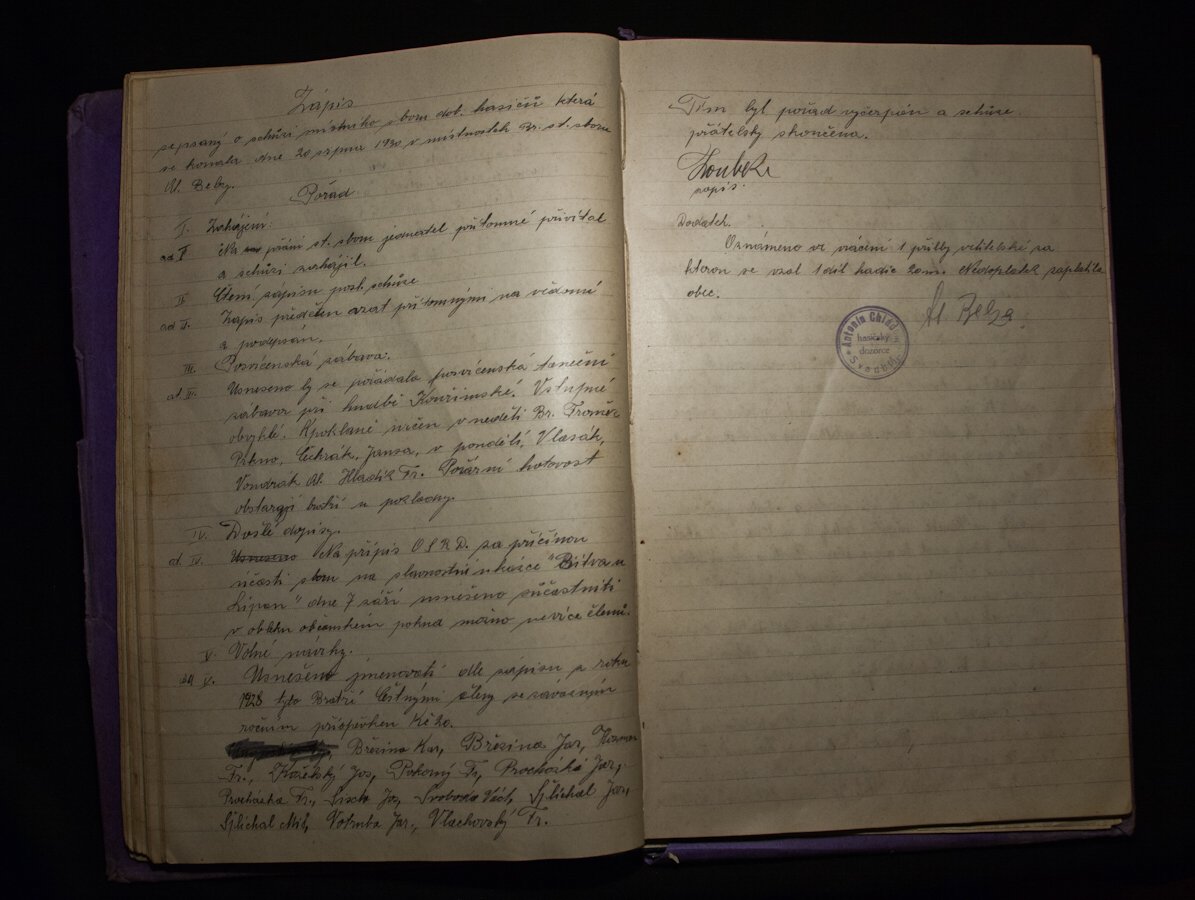 Zápis
sepsaný o schůzi místního sboru dob. hasičů která
se konala dne 20 srpna 1930 v místnostech Br. st. sboru
Al. Belzy.
Pořad
I. Zahájení.
ad I Na přání st. sboru jednatel přítomné přivítal
a schůzi zahájil.
II Čtení zápisu posl. schůze
ad II. Zápis předčten a vzat přítomnými na vědomí
a podepsán.
III. Posvícenská zábava.
ad. III. Usneseno by se pořádala posvícenská taneční
zábava při hudbě Kouřimské. Vstupné
obvyklé. K pokladně určen v neděli Br.
Čechrák, Jansa, v pondělí, Vlasák,
Vondrák Al. Hladík Fr. Požární hotovost
obstarají bratří u pokladny.
IV. Došlé dopisy.
ad. IV. Usneseno Na přípis za příčinou
účasti sboru na slavnostní ukázce "Bitva u
Lipan" dne 7 září usnešeno súčastniti
v obleku občanském pokud možno nevíce členů.
V. Volné návrhy.
ad V. Usnešeno jmenovati dle zápisu z roku
1928 tyto Bratří Čestnými členy se závazným
ročním příspěvkem Kč 20.
Březina Kar, Březina Jar,
Fr., Koželský Jos, Pokorný Fr, Procházka Jar,
Procházka Fr., Jos, Svoboda Václ, Šlichal Jar,
Šlichal Mil, Votruba Jar, Vlachovský Fr.
Tím byl pořad vyčerpán a schůze
přátelsky skončena.
Koubek
zapis.
Dodatek.
Oznámeno vrácení 1 přilby velitelské za
kterou se vzal 1 díl hadic 20m. Nedoplatek zaplatila
obec.
Al Belza.
Antonín
hasičský
dozorce